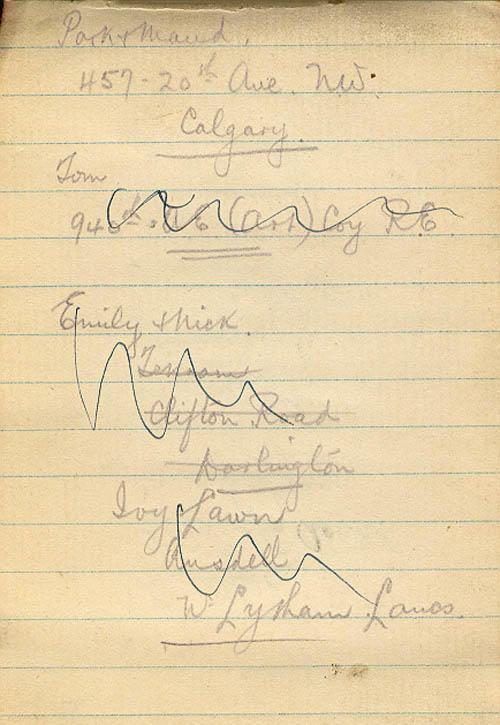 Park & Maud.
457-20th Ave. N.W.
Calgary.
Tom
(Art) Coy R.E.
Emily & Nick.
Clifton Road
Darlington
Ivy Lawn
Ansdell
Lytham Lancs.